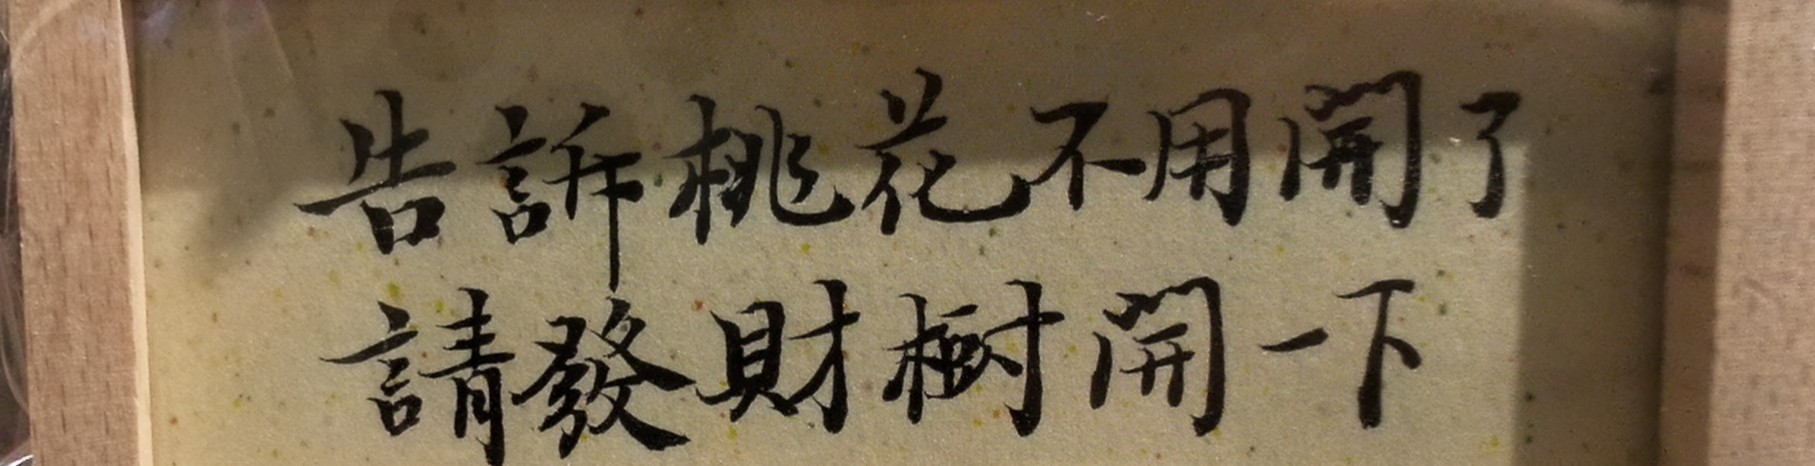 告訴桃花不用開了
請發財樹開一下